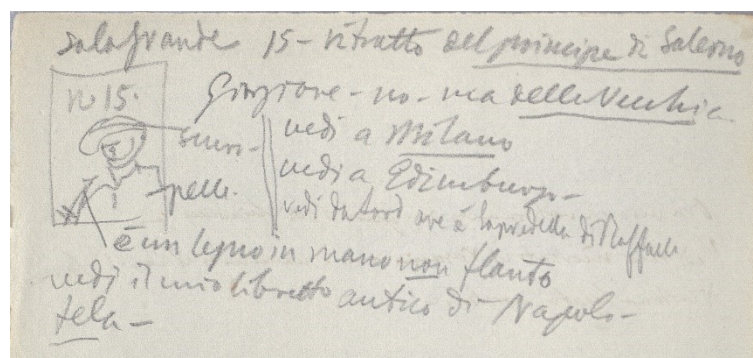 Sala grande 15 - ritratto del principe di Salerno
n 15.
Giorgione - no - ma della Vecchia
scuro -
vedi a Milano
pelle.
vedi a Edimburgo -
vedi da Lord ove è la predella di Raffaele
è un legno in mano non flauto
vedi il mio libretto antico di Napoli -
tela -